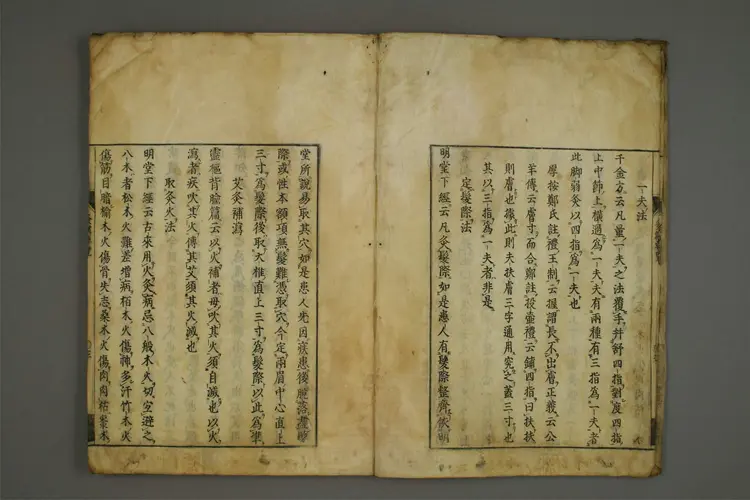 一夫法
千金方云凡量一夫之法覆手并舒四指對度四指
上中節上橫過爲一夫夫有兩種有三指爲一夫者
此脚弱灸以四指爲一夫也
學按鄭氏註禮王制云握謂長不出膚正義云公
羊傳云膚寸而合鄭註投壺禮云鋪四指曰扶扶
則膚也據此則夫扶膚三字通用究之蓋三寸也
其以三指爲一夫者非是
定髮際法
明堂下經云凡灸髮際如是患人有髮際整齊依明
堂所說易取其穴如是患人先因疾患後脫落盡
際或性本額項無髮難憑取穴今定兩眉中心直上
三寸爲髮際後取大椎直上三寸爲髮際以此爲準
艾灸補瀉
靈樞背腧篇云以火補者毋吹其火須自滅也以火
瀉者疾吹其火傳其艾須其火滅也
取灸火法
明堂下經云古來用火灸病忌八般木火切宜避之
八木者松木火難差增病栢木火傷神多汗竹木火
傷筋目暗榆木火傷骨失志桑木火傷肉肉枯棗木